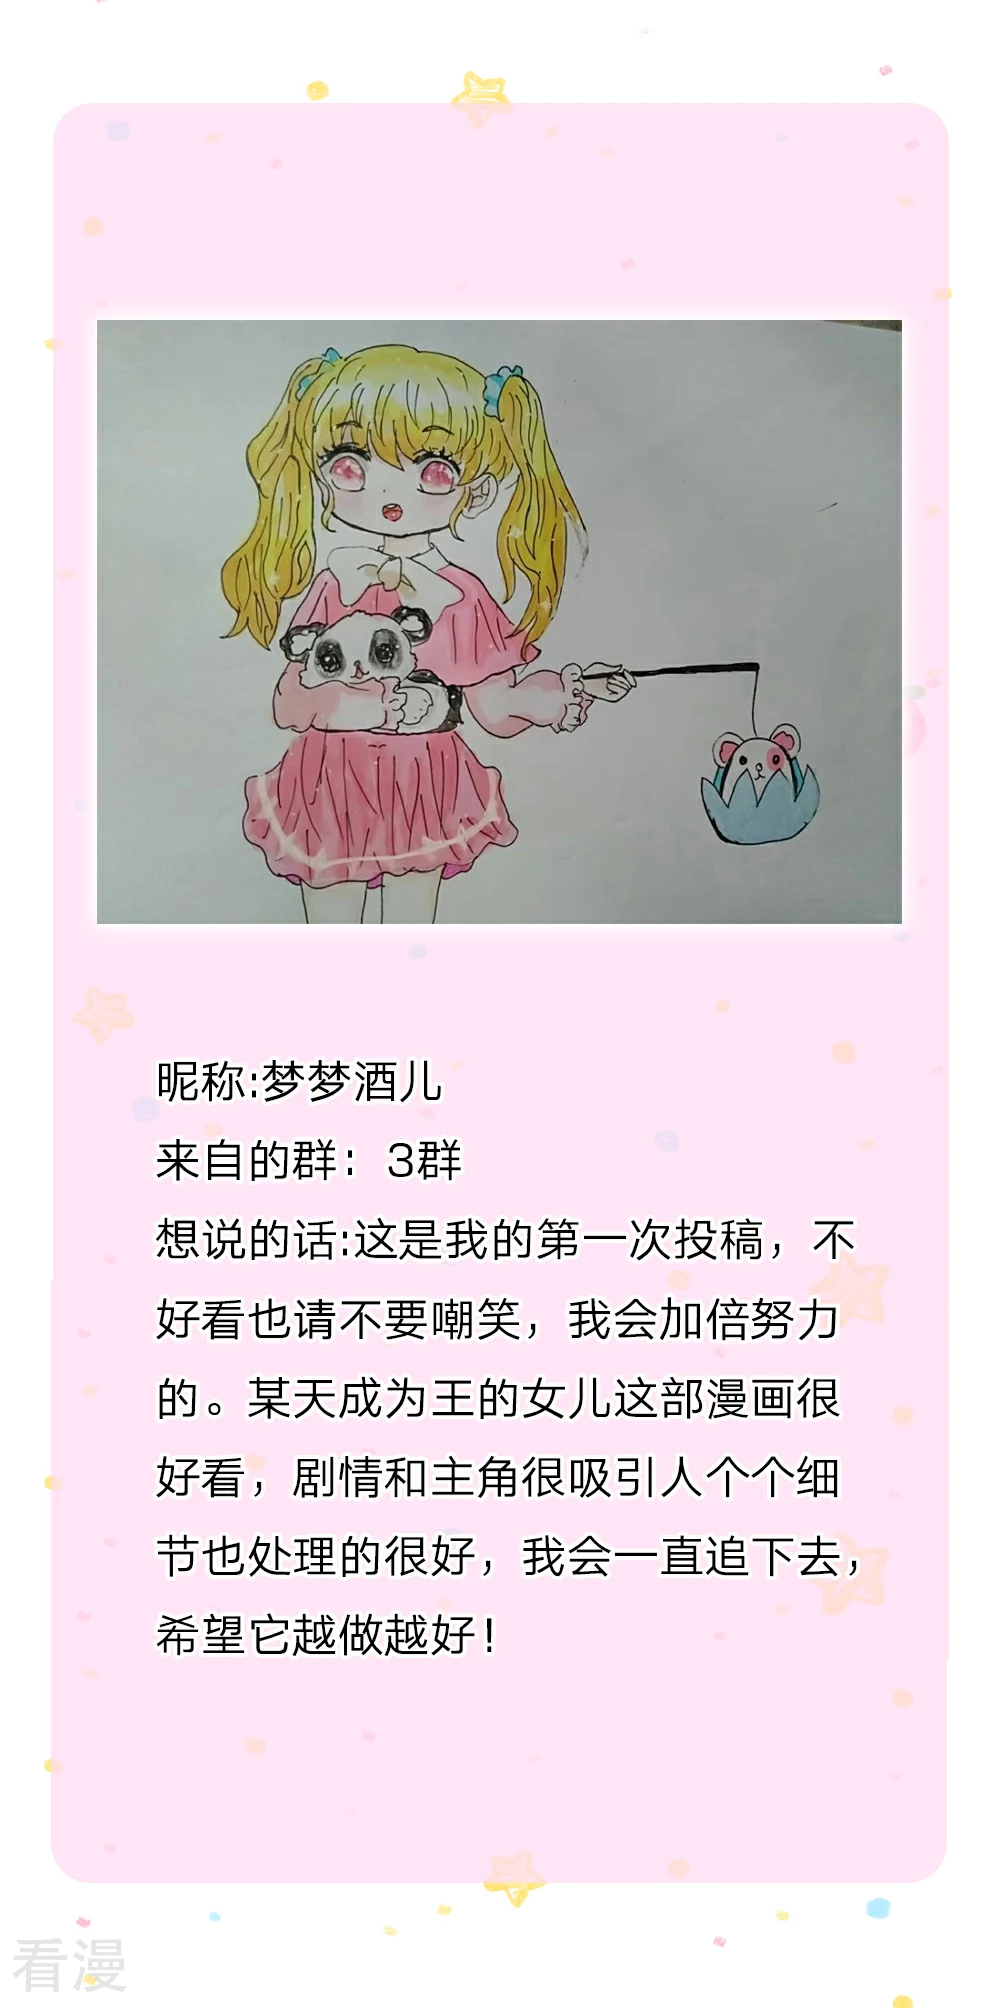 昵称:梦梦酒儿
来自的群：3群
想说的话:这是我的第一次投稿，不
好看也请不要嘲笑，我会加倍努力
的。某天成为王的女儿这部漫画很
好看，剧情和主角很吸引人个个细
节也处理的很好，我会一直追下去，
希望它越做越好！
看漫